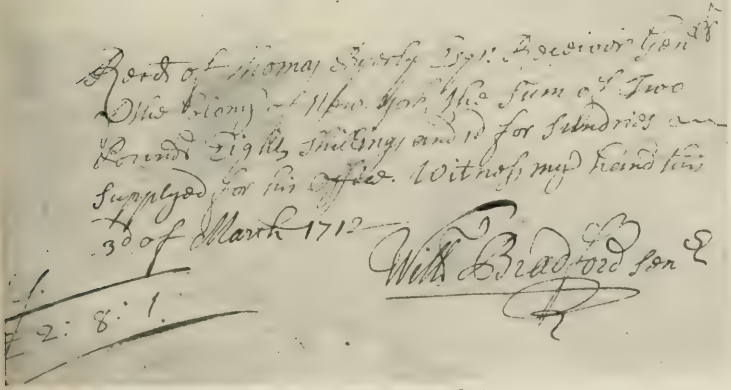 Recd of Thomas Byerly Esqr. Receiver Genll
Of the Colony of New York the Sum of Two
Pounds Eight Shillings and 1d for Sundries
Supplyed for his Office. Witness my hand this
3d of March 1712
Will Bradford Senr
2: 8: 1